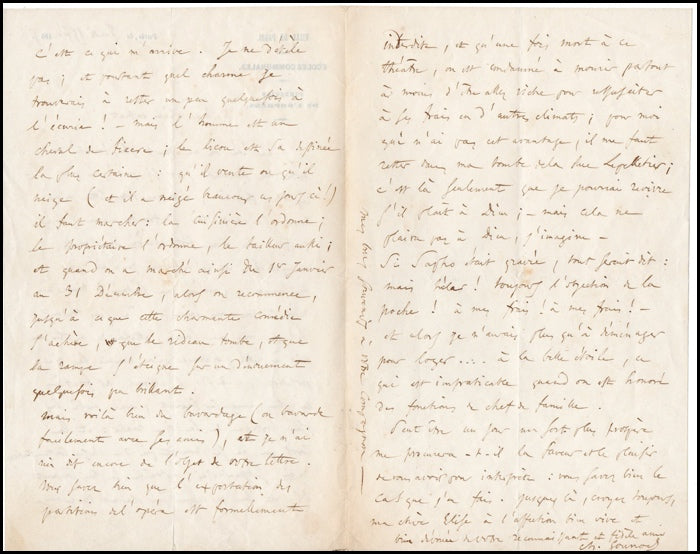 c'est ce qui m'arrive. Je me dételle
pas ; et pourtant quel charme je
trouverais à rester un peu quelquefois à
l'écurie ! – mais l'homme est un
cheval de fiacre ; le licou est sa destinée
la plus certaine : qu'il vente ou qu'il
neige (et il a neigé beaucoup ces jours ci !)
il faut marcher : la cuisinière l'ordonne ;
le propriétaire l'ordonne, le tailleur aussi ;
et quand on a marché ainsi du 1er Janvier
au 31 Décembre, alors on recommence,
jusqu'à ce que cette charmante comédie
s'achève, que le rideau tombe, et que
la rampe s'éteigne sur un dénouement
quelquefois peu brillant.
Mais voilà bien du bavardage (on bavarde
facilement avec ses amis), et je n'ai
rien dit encore de l'objet de votre lettre.
Vous savez bien que l'exportation des
partitions de l'opéra est formellement
interdite, et qu'une fois mort à ce
théâtre, on est condamné à mourir partout
à moins d'être assez riche pour ressusciter
à ses frais en d'autres climats ; pour moi
qui n'ai pas cet avantage, il me faut
rester dans ma tombe de la Rue Lepelletier ;
c'est là seulement que je pourrai revivre
s'il plaît à Dieu ; – mais cela ne
plaira pas à Dieu, j'imagine –
Si Sapho était gravée, tout serait dit :
mais hélas ! toujours l'objection de la
poche ! à mes frais ! à mes frais ! –
et alors je n'aurais plus qu'à déménager
pour loger .... à la belle étoile, ce
qui est impraticable quand on est honoré
des fonctions de chef de famille.
Peut être un jour un sort plus prospère
me procurera-t-il la faveur et le plaisir
de vous avoir pour interprète : vous savez bien le
cas que j'en fais. Jusques là, croyez toujours,
ma chère Elise à l'affection bien vive et
bien dévouée de votre reconnaissant et fidèle ami
Ch. Gounod